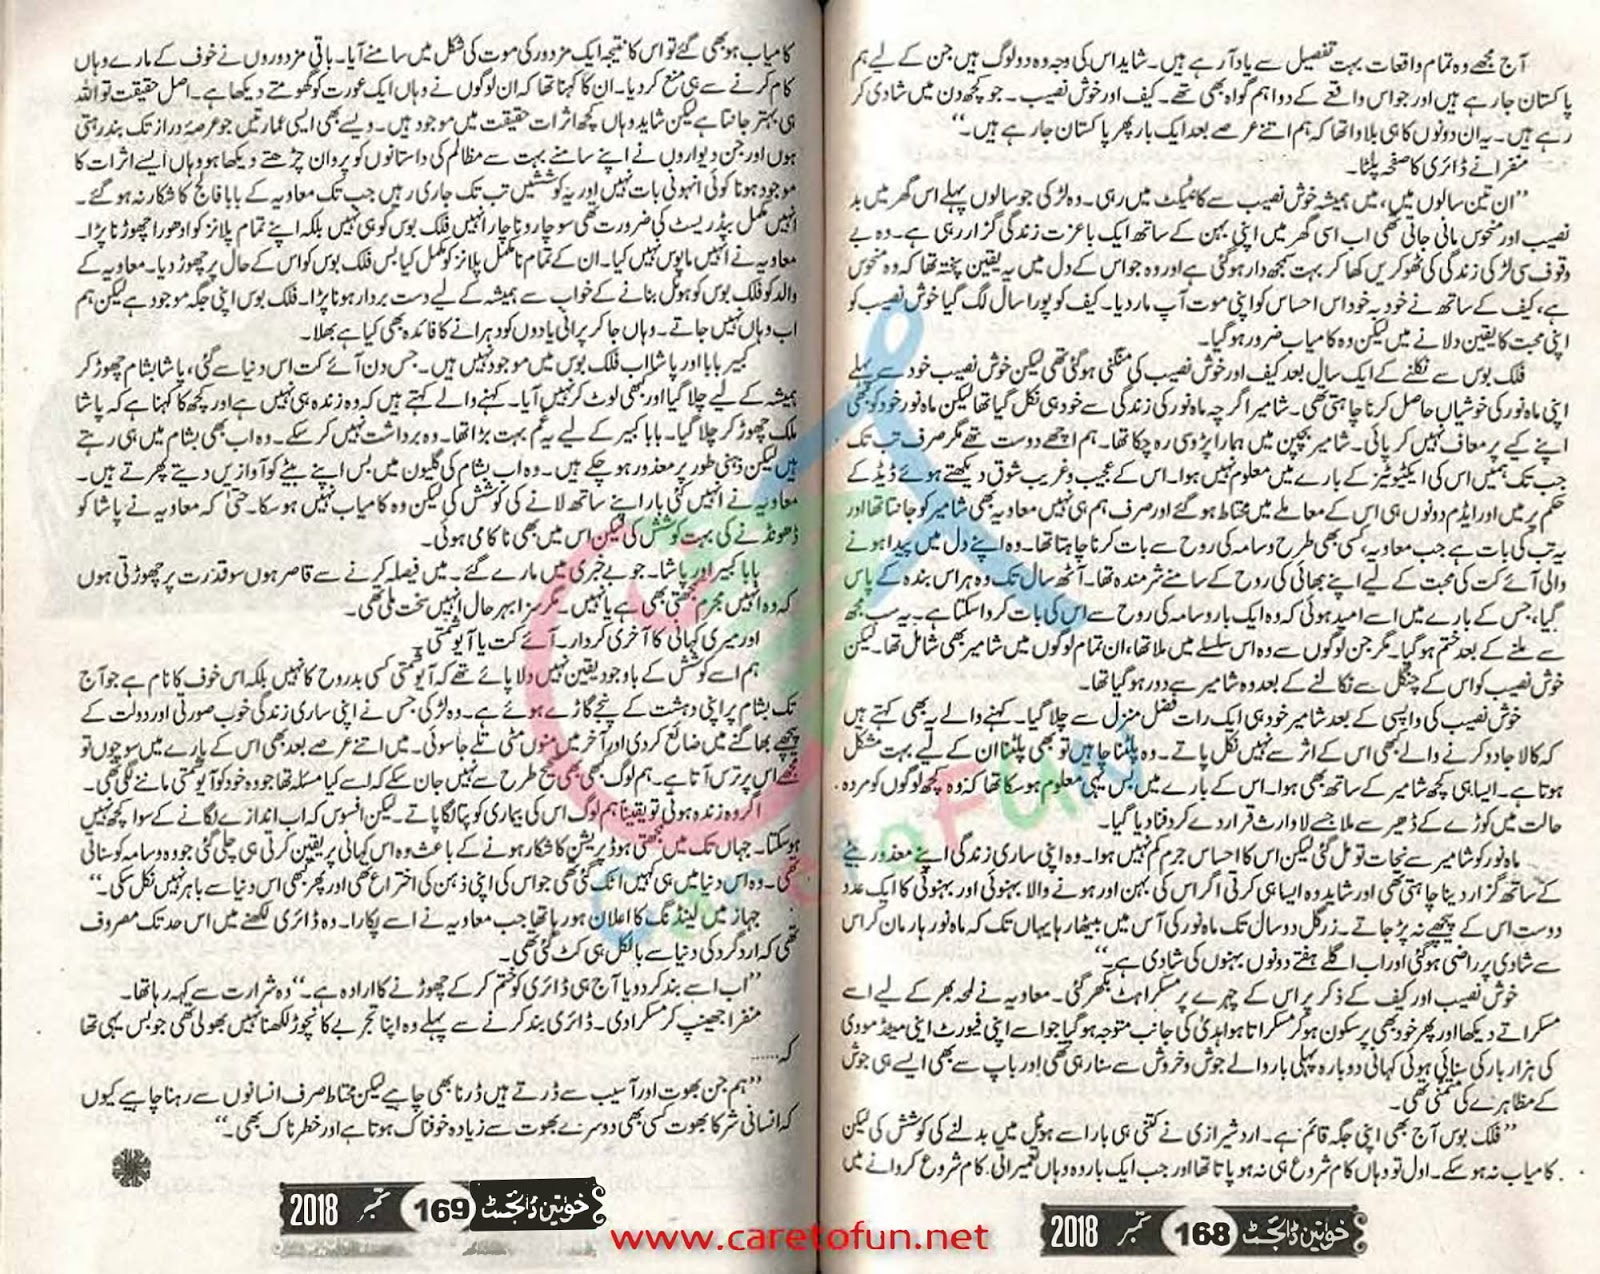 آج مجھے وہ تمام واقعات بہت تفصیل سے یاد آرہے ہیں۔ شاید اس کی وجہ وہ دو لوگ ہیں جن کے لیے ہم
پاکستان جارہے ہیں اور جو اس واقعے کے دو اہم گواہ بھی تھے۔ کیف اور خوش نصیب۔ جو کچھ دن میں شادی کر
رہے ہیں۔ یہ ان دونوں کا ہی بلاوا تھا کہ ہم اتنے عرصے بعد ایک بار پھر پاکستان جارہے ہیں۔“
منفرا نے ڈائری کا صفحہ پلٹا۔
”ان تین سالوں میں، میں ہمیشہ خوش نصیب سے کانٹیکٹ میں رہی۔ وہ لڑکی جو سالوں پہلے اس گھر میں بد
نصیب اور منحوس مانی جاتی تھی اب اسی گھر میں اپنی بہن کے ساتھ ایک باعزت زندگی گزار رہی ہے۔ وہ بے
وقوف سی لڑکی زندگی کی ٹھوکریں کھا کر بہت سمجھ دار ہوگئی ہے اور وہ جو اس کے دل میں یہ یقین پختہ تھا کہ وہ منحوس
ہے، کیف کے ساتھ نے خود بہ خود اس احساس کو اپنی موت آپ مار دیا۔ کیف کو پورا سال لگ گیا خوش نصیب کو
اپنی محبت کا یقین دلانے میں لیکن وہ کامیاب ضرور ہوگیا۔
فلک بوس سے نکلنے کے ایک سال بعد کیف اور خوش نصیب کی منگنی ہوگئی تھی لیکن خوش نصیب خود سے پہلے
اپنی ماہ نور کی خوشیاں حاصل کرنا چاہتی تھی۔ شامیر اگرچہ ماہ نور کی زندگی سے خود ہی نکل گیا تھا لیکن ماہ نور خود کو کبھی
اپنے کیے پر معاف نہیں کر پائی۔ شامیر بچپن میں ہمارا پڑوسی رہ چکا تھا۔ ہم اچھے دوست تھے مگر صرف تب تک
جب تک ہمیں اس کی ایکٹیوٹیز کے بارے میں معلوم نہیں ہوا۔ اس کے عجیب و غریب شوق دیکھتے ہوئے ڈیڈ کے
حکم پر میں اور ایڈم دونوں ہی اس کے معاملے میں محتاط ہوگئے اور صرف ہم ہی نہیں معاویہ بھی شامیر کو جانتا تھا اور
یہ تب کی بات ہے جب معاویہ، کسی بھی طرح وسامہ کی روح سے بات کرنا چاہتا تھا۔ وہ اپنے دل میں پیدا ہونے
والی آئے کت کی محبت کے لیے اپنے بھائی کی روح کے سامنے شرمندہ تھا۔ آٹھ سال تک وہ ہر اس بندہ کے پاس
گیا، جس کے بارے میں اسے امید ہوئی کہ وہ ایک بار وسامہ کی روح سے اس کی بات کروا سکتا ہے۔ یہ سب مجھ
سے ملنے کے بعد ختم ہوگیا۔ مگر جن لوگوں سے وہ اس سلسلے میں ملا تھا، ان تمام لوگوں میں شامیر بھی شامل تھا۔ لیکن
خوش نصیب کو اس کے چنگل سے نکالنے کے بعد وہ شامیر سے دور ہوگیا تھا۔
خوش نصیب کی واپسی کے بعد شامیر خود ہی ایک رات فضل منزل سے چلا گیا۔ کہنے والے یہ بھی کہتے ہیں
کہ کالا جادو کرنے والے بھی اس کے اثر سے نہیں نکل پاتے۔ وہ پلٹنا چاہیں تو بھی پلٹنا ان کے لیے بہت مشکل
ہوتا ہے۔ ایسا ہی کچھ شامیر کے ساتھ بھی ہوا۔ اس کے بارے میں بس یہی معلوم ہوسکا تھا کہ وہ کچھ لوگوں کو مردہ
حالت میں کوڑے کے ڈھیر سے ملا جسے لاوارث قرار دے کر دفنا دیا گیا۔
ماہ نور کو شامیر سے نجات تو مل گئی لیکن اس کا احساس جرم کم نہیں ہوا۔ وہ اپنی ساری زندگی اپنے معذور بیٹے
کے ساتھ گزار دینا چاہتی تھی اور شاید وہ ایسا ہی کرتی اگر اس کی بہن اور ہونے والا بہنوئی اور بہنوئی کا ایک عدد
دوست اس کے پیچھے نہ پڑ جاتے۔ زرگل دو سال تک ماہ نور کی آس میں بیٹھا رہا یہاں تک کہ ماہ نور ہار مان کر اس
سے شادی پر راضی ہوگئی اور اب اگلے ہفتے دونوں بہنوں کی شادی ہے۔“
خوش نصیب اور کیف کے ذکر پر اس کے چہرے پر مسکراہٹ بکھر گئی۔ معاویہ نے لمحہ بھر کے لیے اسے
مسکراتے دیکھا اور پھر خود بھی پرسکون ہو کر مسکراتا ہوا ہدیٰ کی جانب متوجہ ہوگیا جو اسے اپنی فیورٹ اپنی میٹڈ مووی
کی ہزار بار کی سنائی ہوئی کہانی دوبارہ پہلی بار والے جوش و خروش سے سنا رہی تھی اور باپ سے بھی ایسے ہی جوش
کے مظاہرے کی متمنی تھی۔
”فلک بوس آج بھی اپنی جگہ قائم ہے۔ اردشیرازی نے کتنی ہی بار اسے ہوٹل میں بدلنے کی کوشش کی لیکن
کامیاب نہ ہوسکے۔ اول تو وہاں کام شروع ہی نہ ہو پاتا تھا اور جب ایک بار وہ وہاں تعمیراتی کام شروع کروانے میں
خواتین ڈائجسٹ 168 ستمبر 2018
کامیاب ہو بھی گئے تو اس کا نتیجہ ایک مزدور کی موت کی شکل میں سامنے آیا۔ باقی مزدوروں نے خوف کے مارے وہاں
کام کرنے سے ہی منع کردیا۔ ان کا کہنا تھا کہ ان لوگوں نے وہاں ایک عورت کو گھومتے دیکھا ہے۔ اصل حقیقت تو اللہ
ہی بہتر جانتا ہے لیکن شاید وہاں کچھ اثرات حقیقت میں موجود ہیں۔ ویسے بھی ایسی عمارتیں جو عرصۂ دراز تک بند رہتی
ہوں اور جن دیواروں نے اپنے سامنے بہت سے مظالم کی داستانوں کو پروان چڑھتے دیکھا ہو وہاں ایسے اثرات کا
موجود ہونا کوئی انہونی بات نہیں اور یہ کوششیں تب تک جاری رہیں جب تک معاویہ کے بابا فالج کا شکار نہ ہوگئے۔
انہیں مکمل بیڈ ریسٹ کی ضرورت تھی سو چار و ناچار انہیں فلک بوس کو ہی نہیں بلکہ اپنے تمام پلانز کو ادھورا چھوڑنا پڑا۔
معاویہ نے انہیں مایوس نہیں کیا۔ ان کے تمام نامکمل پلانز کو مکمل کیا بس فلک بوس کو اس کے حال پر چھوڑ دیا۔ معاویہ کے
والد کو فلک بوس کو ہوٹل بنانے کے خواب سے ہمیشہ کے لیے دست بردار ہونا پڑا۔ فلک بوس اپنی جگہ موجود ہے لیکن ہم
اب وہاں نہیں جاتے۔ وہاں جا کر پرانی یادوں کو دہرانے کا فائدہ بھی کیا ہے بھلا۔
کبیر بابا اور پاشا اب فلک بوس میں موجود نہیں ہیں۔ جس دن آئے کت اس دنیا سے گئی، پاشا بشام چھوڑ کر
ہمیشہ کے لیے چلا گیا اور کبھی لوٹ کر نہیں آیا۔ کہنے والے کہتے ہیں کہ وہ زندہ ہی نہیں ہے اور کچھ کا کہنا ہے کہ پاشا
ملک چھوڑ کر چلا گیا۔ بابا کبیر کے لیے یہ غم بہت بڑا تھا۔ وہ برداشت نہیں کرسکے۔ وہ اب بھی بشام میں ہی رہتے
ہیں لیکن ذہنی طور پر معذور ہوچکے ہیں۔ وہ اب بشام کی گلیوں میں بس اپنے بیٹے کو آوازیں دیتے پھرتے ہیں۔
معاویہ نے انہیں کئی بار اپنے ساتھ لانے کی کوشش کی لیکن وہ کامیاب نہیں ہوسکا۔ حتیٰ کہ معاویہ نے پاشا کو
ڈھونڈنے کی بہت کوشش کی لیکن اس میں بھی ناکامی ہوئی۔
بابا کبیر اور پاشا۔ جو بے خبری میں مارے گئے۔ میں فیصلہ کرنے سے قاصر ہوں سو قدرت پر چھوڑتی ہوں
کہ وہ انہیں مجرم سمجھتی بھی ہے یا نہیں۔ مگر سزا بہر حال انہیں سخت ملی تھی۔
اور میری کہانی کا آخری کردار۔ آئے کت یا آیوشمتی؟
ہم اسے کوشش کے باوجود یقین نہیں دلا پائے تھے کہ آیوشمتی کسی بدروح کا نہیں بلکہ اس خوف کا نام ہے جو آج
تک بشام پر اپنی دہشت کے پنجے گاڑے ہوئے ہے۔ وہ لڑکی جس نے اپنی ساری زندگی خوب صورتی اور دولت کے
پیچھے بھاگنے میں ضائع کردی اور آخر میں منوں مٹی تلے جا سوئی۔ میں اتنے عرصے بعد بھی اس کے بارے میں سوچوں تو
مجھے اس پر ترس آتا ہے۔ ہم لوگ بھی بھی صحیح طرح سے نہیں جان سکے کہ اسے کیا مسئلہ تھا جو وہ خود کو آیوشمتی ماننے لگی تھی۔
اگر وہ زندہ ہوتی تو یقیناً ہم لوگ اس کی بیماری کو پتا لگا پاتے۔ لیکن افسوس کہ اب اندازے لگانے کے سوا کچھ نہیں
ہوسکتا۔ جہاں تک میں سمجھتی ہو ڈپریشن کا شکار ہونے کے باعث وہ اس کہانی پر یقین کرتی ہی چلی گئی جو وہ وسامہ کو سناتی
تھی۔ وہ اس دنیا میں ہی کہیں اٹک گئی تھی جو اس کی اپنی ذہن کی اختراع تھی اور پھر کبھی اس دنیا سے باہر نہیں نکل سکی۔“
جہاز میں لینڈنگ کا اعلان ہو رہا تھا جب معاویہ نے اسے پکارا۔ وہ ڈائری لکھنے میں اس حد تک مصروف
تھی کہ ارد گرد کی دنیا سے بالکل ہی کٹ گئی تھی۔
”اب اسے بند کردو یا آج ہی ڈائری کو ختم کرکے چھوڑنے کا ارادہ ہے۔“ وہ شرارت سے کہہ رہا تھا۔
منفرا جھینپ کر مسکرا دی۔ ڈائری بند کرنے سے پہلے وہ اپنا تجربے کا نچوڑ لکھنا نہیں بھولی تھی جو بس یہی تھا
کہ......
”ہم جن بھوت اور آسیب سے ڈرتے ہیں ڈرنا بھی چاہیے لیکن محتاط صرف انسانوں سے رہنا چاہیے کیوں
کہ انسانی شر کا بھوت کسی بھی دوسرے بھوت سے زیادہ خوفناک ہوتا ہے اور خطرناک بھی۔“
خواتین ڈائجسٹ 169 ستمبر 2018
www.caretofun.net
CaretoFUN